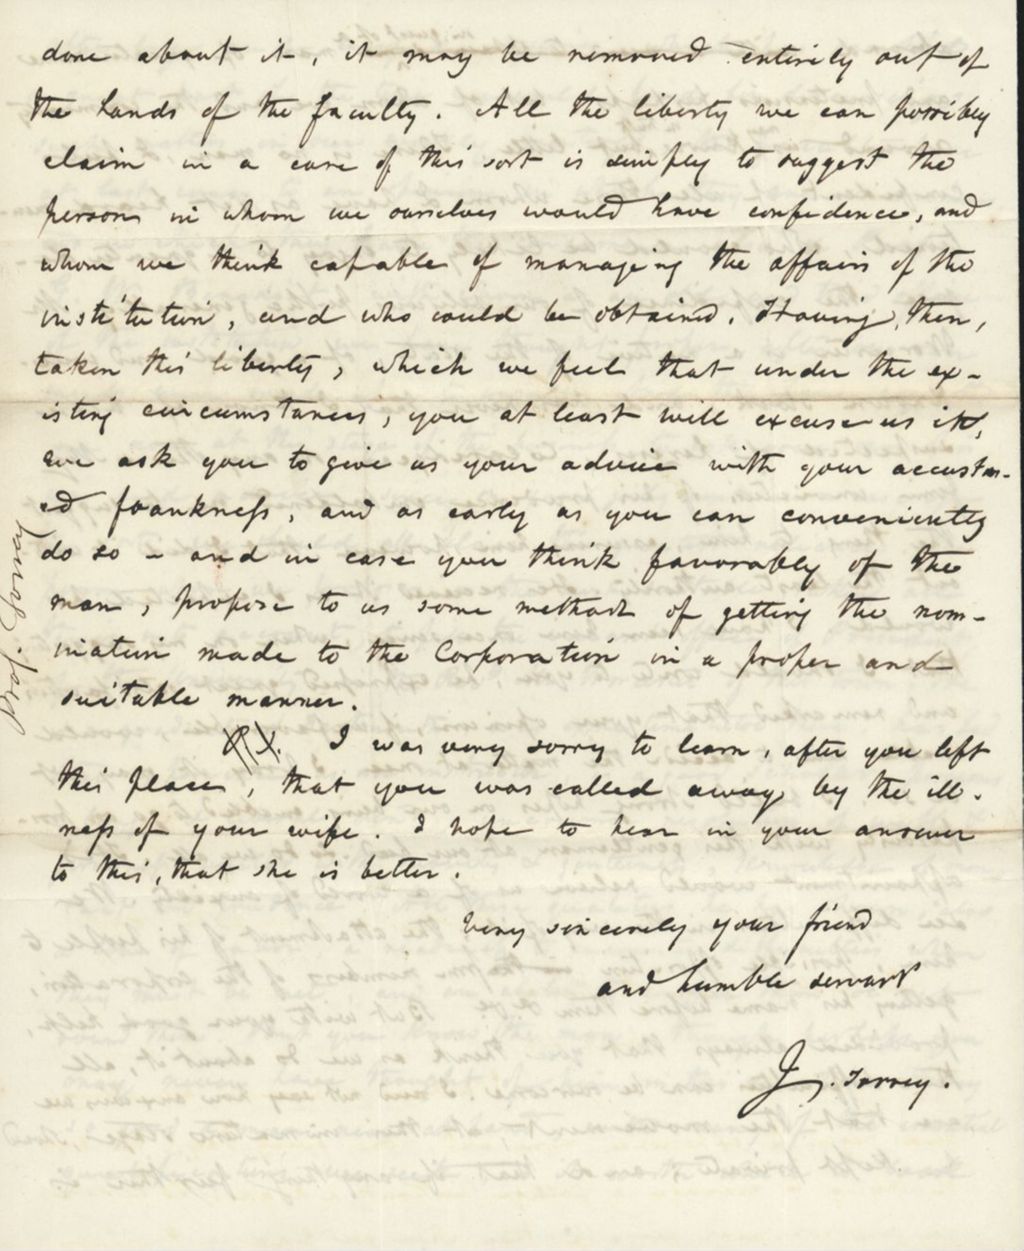 done about it, it may be removed entirely out of
the hands of the faculty. All the liberty we can possibly
claim in a case of this sort is simply to suggest the
persons in whom we ourselves would have confidence, and
whom we think capable of managing the affairs of the
institution, and who could be obtained. Having, then,
taken this liberty, which we feel that under the ex-
isting circumstances, you at least will excuse us it,
we ask you to give us your advice with your accustom-
ed frankness, and as early as you can conveniently
do so – and in case you think favorably of the
man, propose to us some method of getting the nom-
ination made to the Corporation in a proper and
suitable manner.
I was very sorry to learn, after you left
this place, that you was called away by the ill-
ness of your wife. I hope to hear in your answer
to this, that she is better.
Very sincerely your friend
and humble servant
J. Torrey.
Prof. Torrey